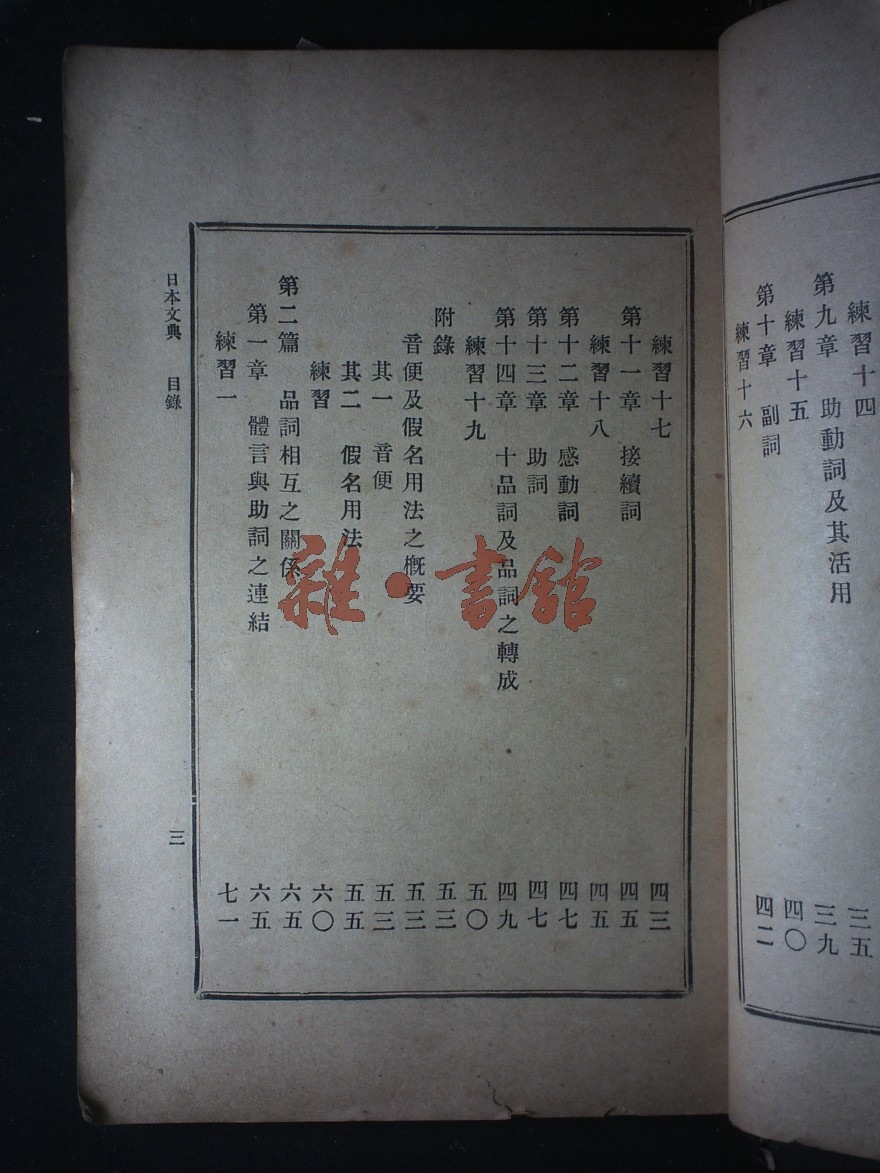 練習十四 三五
第九章 助動詞及其活用 三九
練習十五 四〇
第十章 副詞 四二
練習十六
練習十七 四三
第十一章 接續詞 四五
練習十八 四五
第十二章 感動詞 四七
第十三章 助詞 四七
第十四章 十品詞及品詞之轉成 四九
練習十九 五〇
附錄 五三
音便及假名用法之概要 五三
其一 音便 五三
其二 假名用法 五五
練習 六〇
第二篇 品詞相互之關係 六五
第一章 體言與助詞之連結 六五
練習一 七一
日本文典 目錄 三
雜·書館